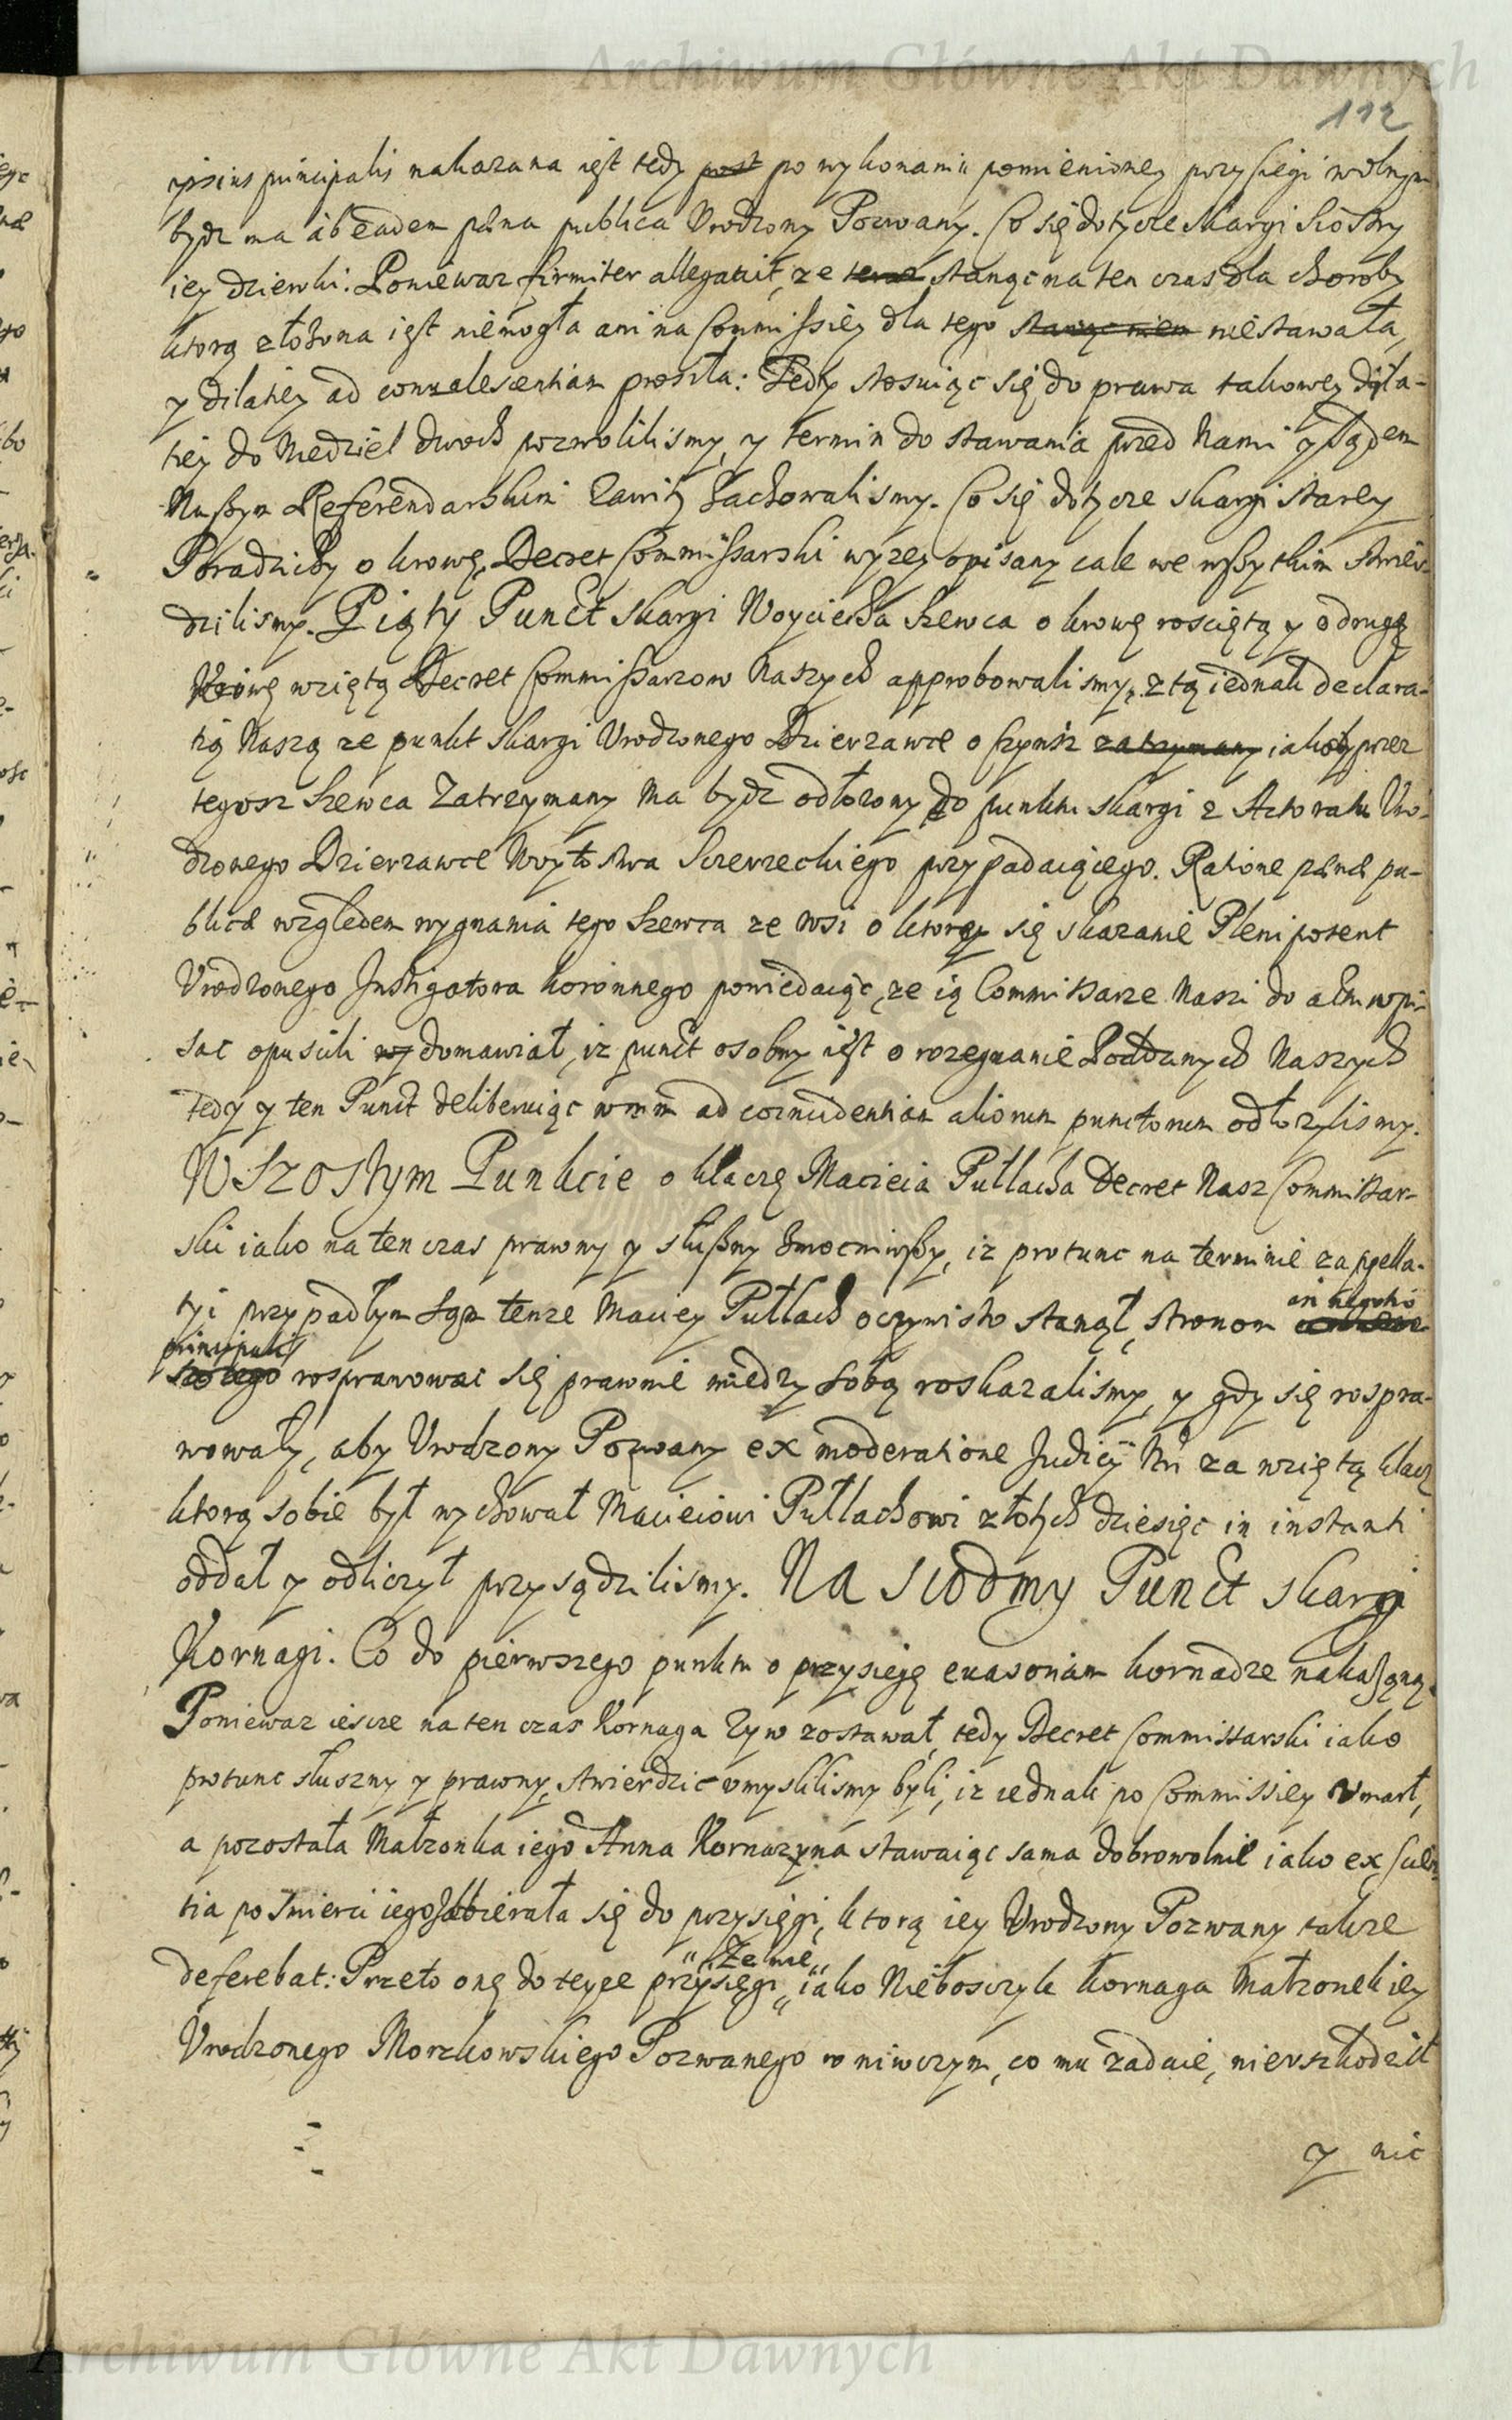 Archiwum Główne Akt Dawnych
112
ipsius principalis nakazana iest tedy post po wykonaniu pomienioney przysięgi wolnym
bydz ma ab eadem pæna publica Urodzony Pozwany. Co się dotycze skargi Siostry
iey dziewki. Poniewaz firmiter allegavit, ze teraz stanąc na ten czas dla choroby
ktorą złozona iest niemogła ani na Commissiey dla tego niestawała,
y dilatiey ad convalescentiam prosiła: Tedy stosuiąc się do prawa takowey dyla-
tiey do Niedziel dwoch pozwolilismy, y termin do stawania przed Nami y Sądem
Naszym Referendarskim Zawity zachowalismy. Co się dotycze skargi starey
Poradzichy o krowę, Decret Commissarski wyzey opisany cale we wszytkim stwier-
dzilismy. Piąty Punct skargi Woyciecha Szewca o krowę rosciętą y o drugą
Krowę wziętą Decret Commissarzow Naszych approbowalismy, z tą iednak declara-
tią Naszą ze punkt skargi Urodzonego Dzierzawce o czynsz zatrzymany iakoby przez
tegosz Szewca Zatrzymany ma bydz odłozony do punktu skargi z Actoratu Uro-
dzonego Dzierzawce Woytostwa Szczerzeckiego przypadaiącego. Ratione pænæ pu-
blicæ względem wygnania tego Szewca ze wsi o ktorey się skazanie Plenipotent
Urodzonego Instigatora koronnego powiedaiąc, ze ią Commissarze Nasi do aktu wpi-
sac opuscili domawiał, iz punct osobny iest o rozegnanie Poddanych Naszych
tedy y ten Punct deliberuiąc ad coincidentiam aliorum punctorum odłozylismy.
W Szostym Punkcie o klaczę Macieia Putlacha Decret Nasz Commissar-
ski iako na ten czas prawny y słuszny zmocniwszy, iz protunc na terminie z appella-
tyi przypadłym sam tenze Maciey Putlach oczywisto stanął, stronom in negotio
principali
rosprawowac się prawnie między sobą roskazalismy, y gdy się rospra-
wowały, aby Urodzony Pozwany ex moderatione Judicij Nri za wziętą klacz
ktorą sobie był wychował Macieiowi Putlachowi złotych dziesięc in instanti
oddał y odliczył przysądzilismy. Na siodmy Punct skargi
Kornagi. Co do pierwszego punktu o przysięgę euasoriam kornadze nakazaną.
Poniewaz iescze na ten czas Kornaga zyw zostawał, tedy Decret Commissarski iako
protunc słuszny y prawny, stwierdzic umyslilismy byli, iz iednak po Commissiey umarł,
a pozostała Małzonka iego Anna Kornazyna stawaiąc sama dobrowolnie iako ex scien
tia po smierci iego zabierała się do przysięgi, ktorą iey Urodzony Pozwany takze
deferebat: Przeto onę do teyze przysięgi " Ze nie " iako Nieboszczyk kornaga Małzonek iey
Urodzonego Morzkowskiego Pozwanego w niwczym, co mu zadaie, nieuszkodził
y nic
Archiwum Główne Akt Dawnych